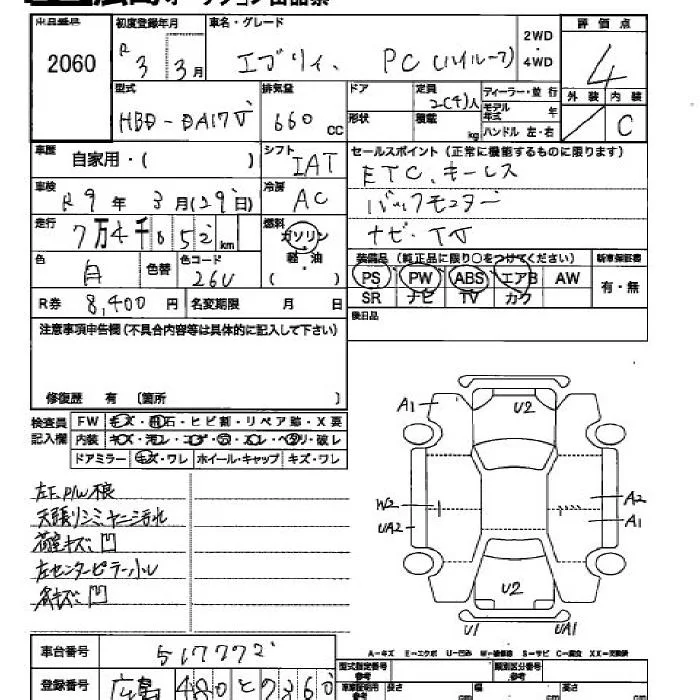 出品番号 初度登録年月 車名・グレード 2WD ・ 4WD 評価点
2060 R 3年 3月 エブリィ PC (ハイルーフ) 4
外装 内装
C
型式 排気量 ドア 定員 ディーラー・並行
HBD-DA17V 660 CC 2(4)人 モデル年式 年
形状 積載 kg ハンドル 左・右
車歴 自家用・( ) シフト IAT セールスポイント(正常に機能するものに限ります)
ETC、キーレス
車検 R9年 3月(29日) 冷房 AC
バックモニター
走行 7万4千052km 燃料 ガソリン・軽油 ( )
ナビ・TV
色 白 色替 色コード 26U
装備品(純正品に限り○をつけてください) 新車保証書
PS PW ABS エアB AW 有・無
SR ナビ TV カワ
R券 8,400円 名変期限 月 日
後日品
注意事項申告欄(不具合内容等は具体的に記入して下さい)
修復歴 有 〔箇所 〕
検査員記入欄 FW キズ・飛石・ヒビ割・リペア跡・X要
内装 キズ・汚レ・コゲ・穴・スレ・ヘタリ・破レ
ドアミラー キズ・ワレ ホイール・キャップ キズ・ワレ
左F.P/W不良
天張リシミ、ヤニ汚れ
荷室キズ、凹
左センターピラー小U
各キズ、凹
A1 U2
W2 A2
UA2 A1
U2
U1 UA1
A-キズ E-エクボ U-凹み W-補修跡 S-サビ C-腐食 XX-交換跡
車台番号 517772
型式指定番号 参考 類別区分番号 参考
登録番号 広島 480 と 7360
長さ cm 幅 cm 高さ cm